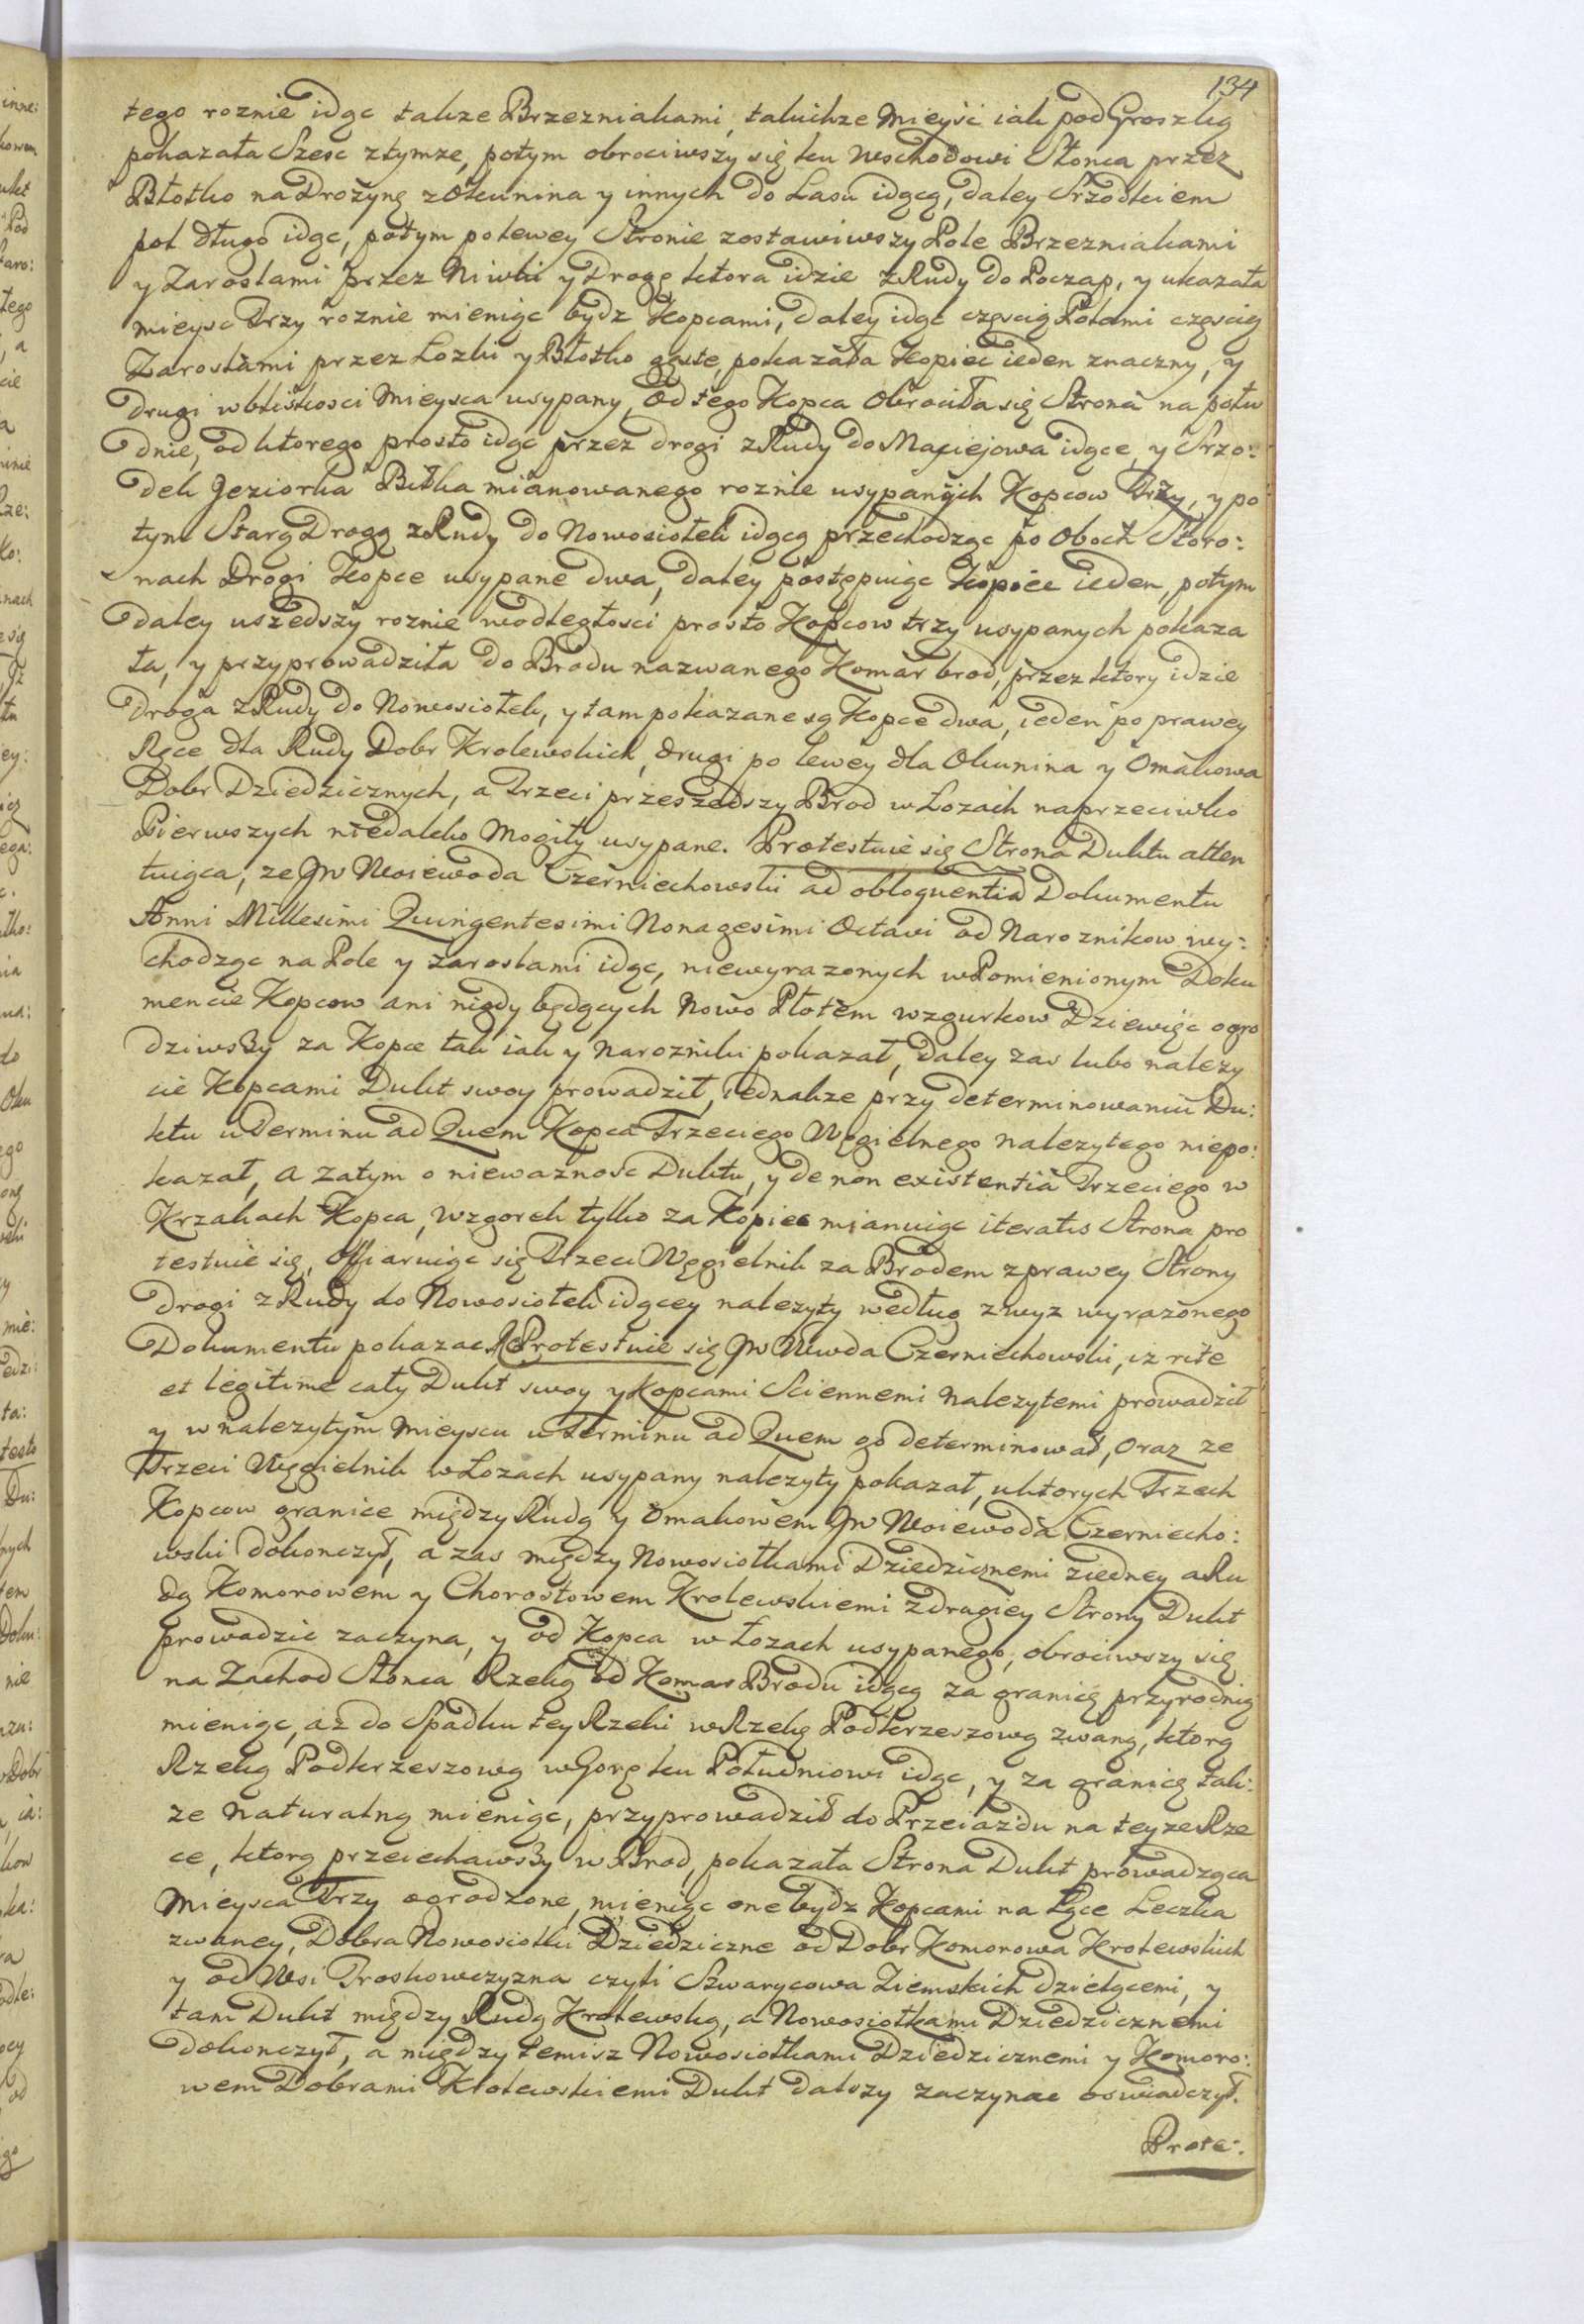 134
tego roznie idąc takze Brzezniakami, takichze Mieysc iak pod Groszką
pokazała Szesc ztymze, potym obrociwszy się ku Wschodowi Słonca przez
Błotko na Drożynę z Okunina y innych do Lasu idącą, daley Srzodkiem
pol długo idąc, potym po lewey Stronie zostawiwszy Pole Brzezniakami
y Zaroslami przez Niwki y Drogę ktora idzie z Rudy do Poczap, y ukazała
mieysc Trzy roznie mieniąc bydz Kopcami, daley idąc częscią Polami częscią
Zaroslami przez Łozki y Błotko gęste, pokazała Kopiec ieden znaczny, y
drugi w bliskosci Mieysca usypany, Od tego Kopca Obrociła się Strona na połu
dnie, od ktorego prosto idąc przez drogi z Rudy do Maciejowa idące, y Srzo:
dek Jeziorka Bitka mianowanego roznie usypanych Kopcow Trzy, y po
tym Starą Drogą z Rudy do Nowosiołek idącą przechodząc po Oboch Storo:
nach Drogi Kopce usypane dwa, daley postępuiąc Kopiec ieden, potym
daley uszedszy roznie w odległosci prosto Kopcow trzy usypanych pokaza
ła, y przyprowadziła do Brodu nazwanego Komar brod, przez ktory idzie
Droga z Rudy do Nowosiołek, y tam pokazane są Kopce dwa, ieden po prawey
Ręce dla Rudy Dobr Krolewskich, drugi po lewey dla Okunina y Omakowa
Dobr Dziedzicznych, a Trzeci przeszedszy Brod w Łozach naprzeciwko
Pierwszych niedaleko Mogiły usypane. Protestuie się Strona Duktu atten
tuiąca, ze JW Woiewoda Czerniechowski ad obloquentia Dokumentu
Anni Millesimi Quingentesimi Nonagesimi Octavi od Naroznikow wy:
chodząc na Pole y zaroslami idąc, niewyrazonych w Pomienionym Doku
mencie Kopcow ani nigdy będących Nowo Płotem wzgurkow Dziewięc ogro
dziwszy za Kopce tak iak y Narozniki pokazał, daley zas lubo nalezy
cie Kopcami Dukt swoy prowadził, iednakze przy determinowaniu Du:
ktu u Terminu ad Quem Kopca Trzeciego Węgielnego nalezytego niepo:
kazał, a zatym o niewaznosc Duktu, y de non existentia Trzeciego w
Krzakach Kopca, wzgorek tylko za Kopiec mianuiąc iteratis Strona pro
testuie się, Offiaruiąc się Trzeci Węgielnik za Brodem z prawey Strony
Drogi z Rudy do Nowosiołek idącey nalezyty według zwyz wyrażonego
Dokumentu pokazac. ReProtestuie się JW Wwda Czerniechowski, iz rite
et legitime cały Dukt swoy y Kopcami Sciennemi nalezytemi prowadził
y w nalezytym Mieyscu u Terminu ad Quem go determinował, oraz ze
Trzeci Węgielnik w Łozach usypany nalezyty pokazał, u ktorych Trzech
Kopcow granice między Rudą y Omakowem JW Woiewoda Czerniecho:
wski dokonczył, a zas między Nowosiołkami Dziedzicznemi z iedney a Ru
dą Komorowem y Chorostowem Krolewskiemi z drugiey Strony Dukt
prowadzic zaczyna, y od Kopca w Łozach usypanego, obrociwszy się
na Zachod Słonca Rzeką od Komar Brodu idącą za granicę przyrodnią
mieniąc, az do Spadku tey Rzeki w Rzekę Podkrzeszową zwaną, ktorą
Rzeką Podkrzeszową w Gorę ku Południowi idąc, y za granicę tak:
ze naturalną mieniąc, przyprowadził do Przeiazdu na teyze Rze
ce, ktorą przeiechawszy w Brod, pokazała Strona Dukt prowadząca
Mieysca Trzy ogrodzone, mieniąc one bydz Kopcami na Łące Leczka
zwaney, Dobra Nowosiołki Dziedziczne od Dobr Komorowa Krolewskich
y od Wsi Troskowczyzna czyli Szwarycowa Ziemskich dzielącemi, y
tam Dukt między Rudą Krolewską, a Nowosiołkami Dziedzicznemi
dokonczył, a między temisz Nowosiołkami Dziedzicznemi y Komoro:
wem Dobrami Krolewskiemi Dukt dalszy zaczynac oswiadczył.
Prote: